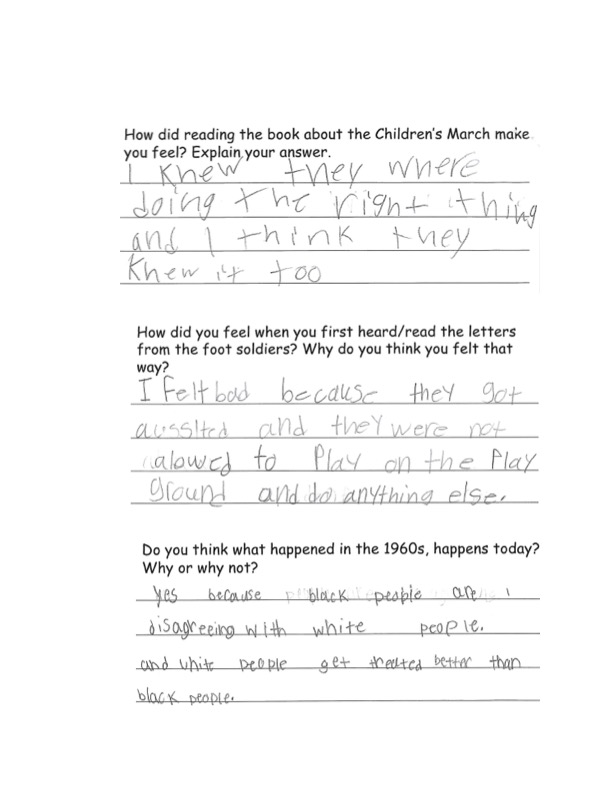 How did reading the book about the Children's March make
you feel? Explain your answer.
I knew they where
doing the right thing
and I think they
knew it too
How did you feel when you first heard/read the letters
from the foot soldiers? Why do you think you felt that
way?
I felt bad because they got
aussited and they were not
alowed to Play on the Play
Ground and do anything else.
Do you think what happened in the 1960s, happens today?
Why or why not?
Yes because black people are
disagreeing with white people.
and white people get treated better than
black people.